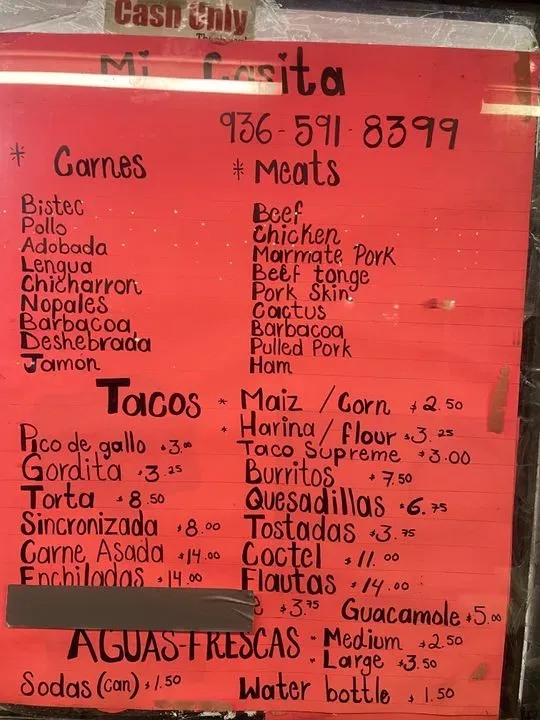 Cash Only
Mi Casita
936-591-8399
* Carnes
* Meats
Bistec
Beef
Pollo
Chicken
Adobada
Marmate Pork
Lengua
Beef tonge
Chicharron
Pork Skin
Nopales
Cactus
Barbacoa
Barbacoa
Deshebrada
Pulled Pork
Jamón
Ham
Tacos * Maiz / Corn $2.50
* Harina / flour $3.25
Pico de gallo $3.00
Taco Supreme $3.00
Gordita $3.25
Burritos $7.50
Torta $8.50
Quesadillas $6.75
Sincronizada $8.00
Tostadas $3.75
Carne Asada $14.00
Coctel $11.00
Enchiladas $14.00
Flautas $14.00
$3.75 Guacamole $5.00
AGUAS-FRESCAS · Medium $2.50
· Large $3.50
Sodas (can) $1.50
Water bottle $1.50